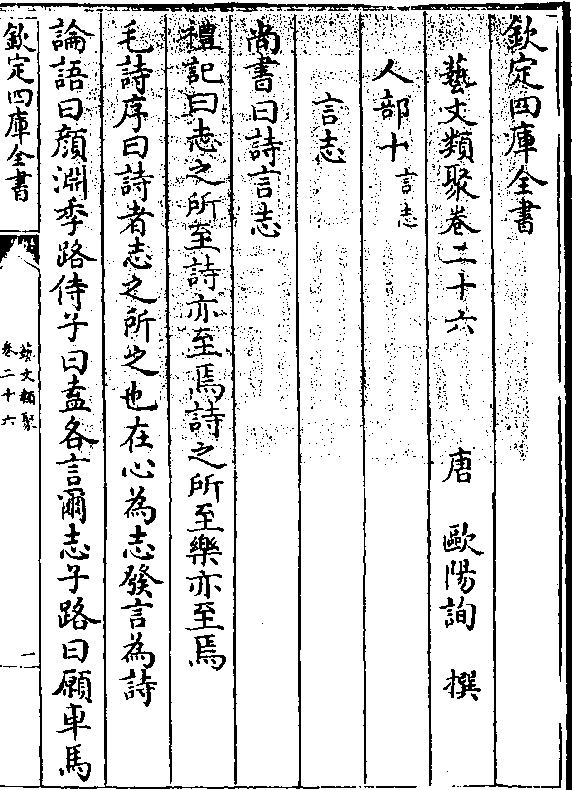 欽定四庫全書
藝文類聚卷二十六
唐 歐陽詢 撰
人部十言志
言志
尚書曰詩言志
禮記曰志之所至詩亦至焉詩之所至樂亦至焉
毛詩序曰詩者志之所之也在心為志發言為詩
論語曰顏淵季路侍子曰盍各言爾志子路曰願車馬
欽定四庫全書
藝文類聚
卷二十六
一